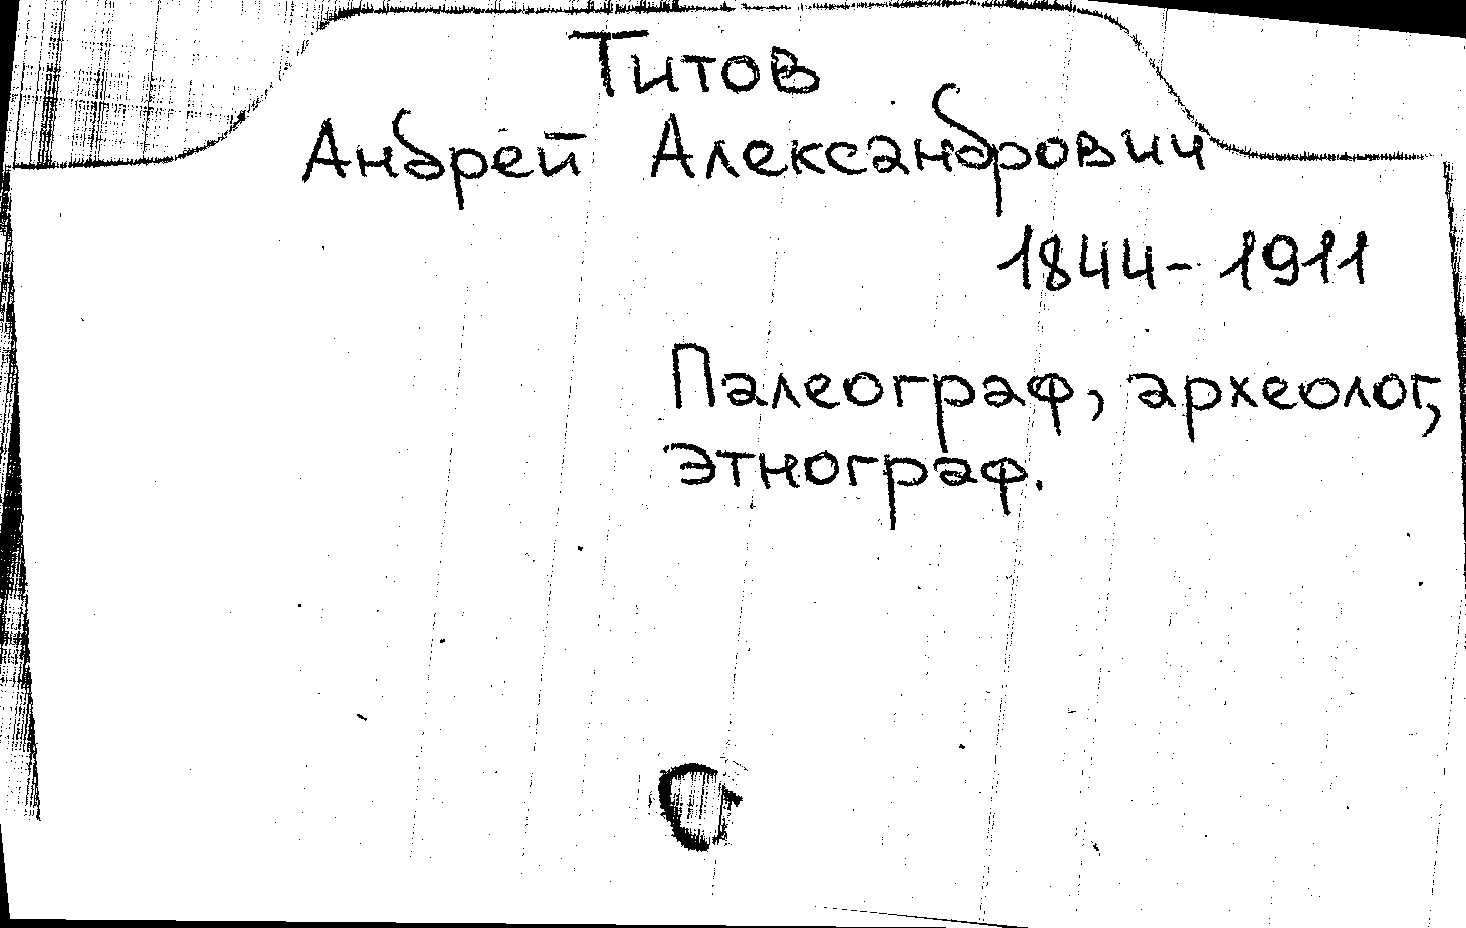 Титов
Андрей Александрович
1844-1911
Палеограф, археолог,
этнограф.